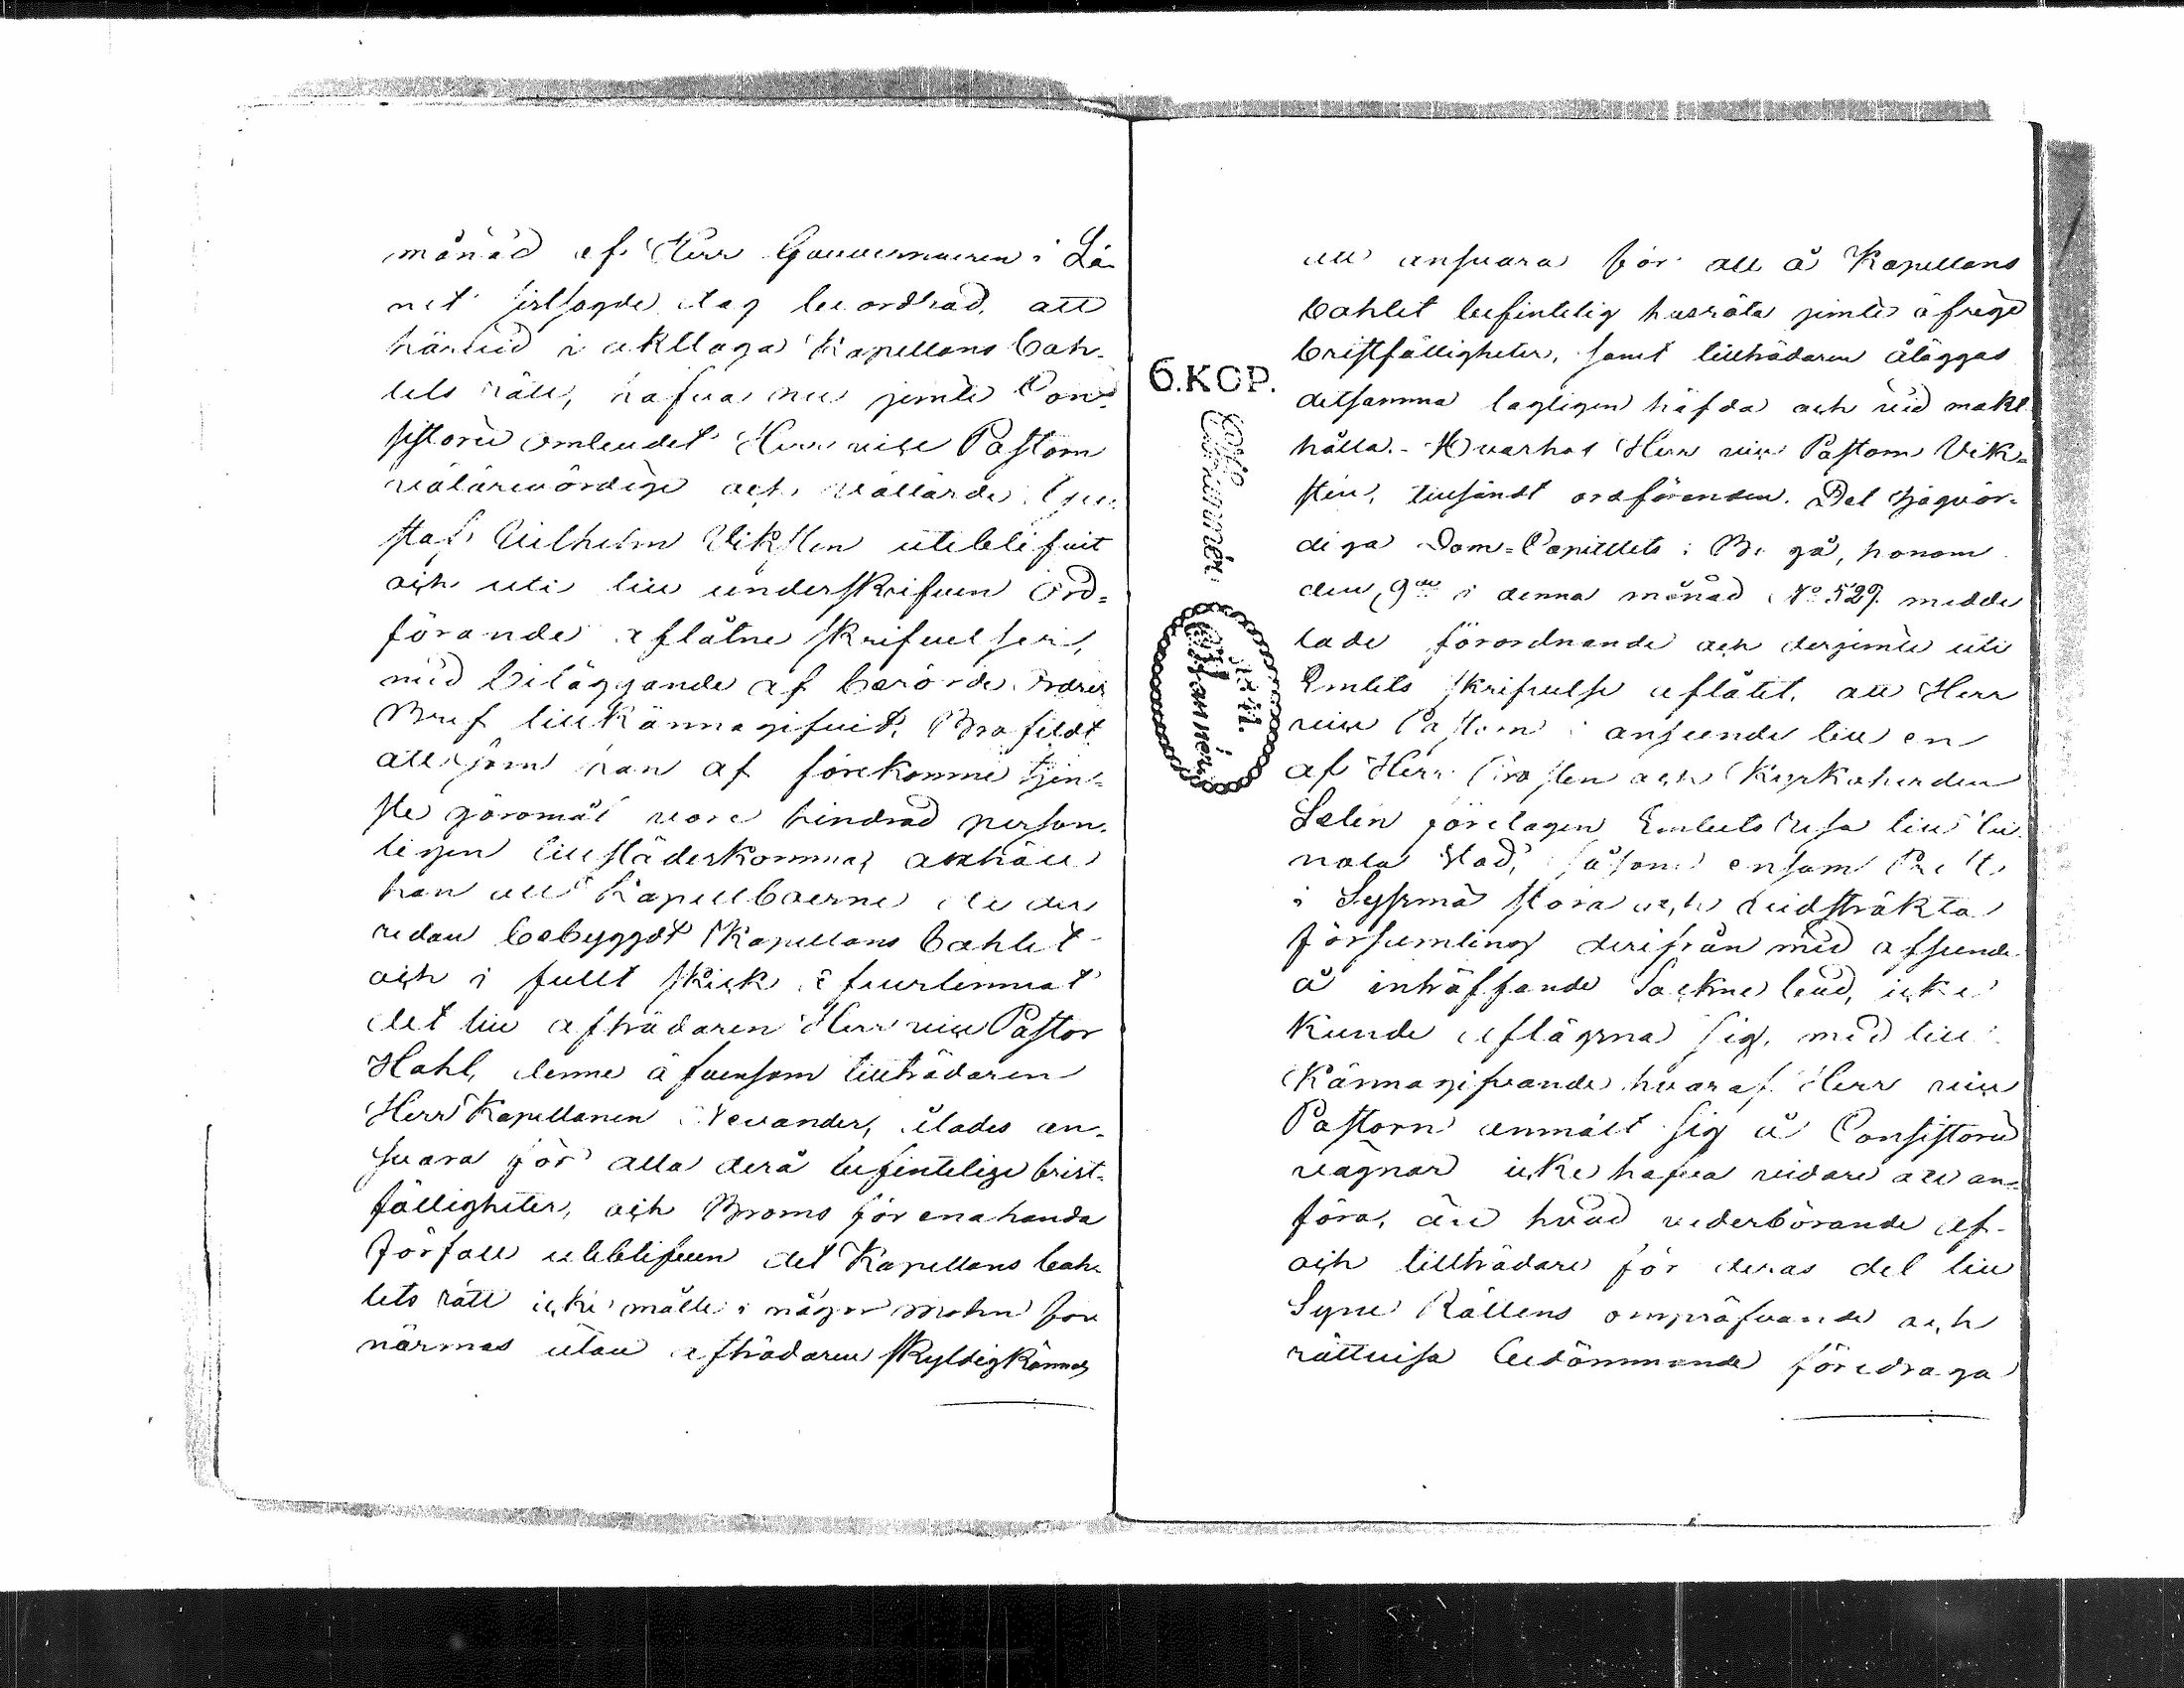 månad af Herr Gouverneuren i Lä-
net förstsagde dag beordrad, att
härvid i akttaga Kapellans bah-
lets rätt, hafva nu jemte Con-
sistorii ombudet Herr vice Pastorn
välärevördige och vällärde Gu-
staf Vilhelm Viksten uteblifvit
och uti till underskrifven Ord-
förande aflåtne skrifvelser,
med biläggande af berörde ordres
Bref tillkännagifvit, Brofeldt
att som han af förekomne tjen-
ste göromål vore hindrad person-
ligen tillstädeskomma, anhåller
han att Kapellboerne, de der
redan bebyggdt Kapellans bahlet
och i fullt skick öfverlemnat
det till afträdaren Herr vice Pastor
Hahl, denne äfvensom tillträdaren
Herr Kapellanen Nevander, ålades an-
svara för alla derå befintelige brist-
fälligheter, och Broms för enahanda
förfall uteblifven det Kapellans bah-
lets rätt icke måtte i någor mohn för
närmas utan afträdaren skyldigkännas
att ansvara för all å Kapellans
bahlet befintelig husröta jemte öfrige
bristfälligheter, samt tillträdaren åläggas
detsamma lagligen häfda och vid makt
hålla.- Hvarhos Herr vice Pastorn Vik-
sten, tillsändt ordföranden. Det Högvör-
diga Dom-Capitlets i Borgå, honom
den 9de i denna månad No 529. medde
lade förordnande och derjemte uti
Embets skrifvelse aflåtit, att Herr
vice Pastorn i anseende till en
af Herr Prosten och Kyrkoherden
Selin företagen Embets resa till
stad, såsom ensam Prest
i Sysmä stora och vidsträkta
församling derifrån med afseende
å inträffande Sockne bud, icke
kunde aflägsna sig, med till
kännagifvande hvaraf Herr vice
Pastorn anmält sig å Consistorii
vägnar icke hafva vidare att an-
föra, än hvad vederbörande af-
och tillträdare för deras del till
Syne Rättens ompröfvande och
rättvisa bedömmande föredraga
6.KOP.